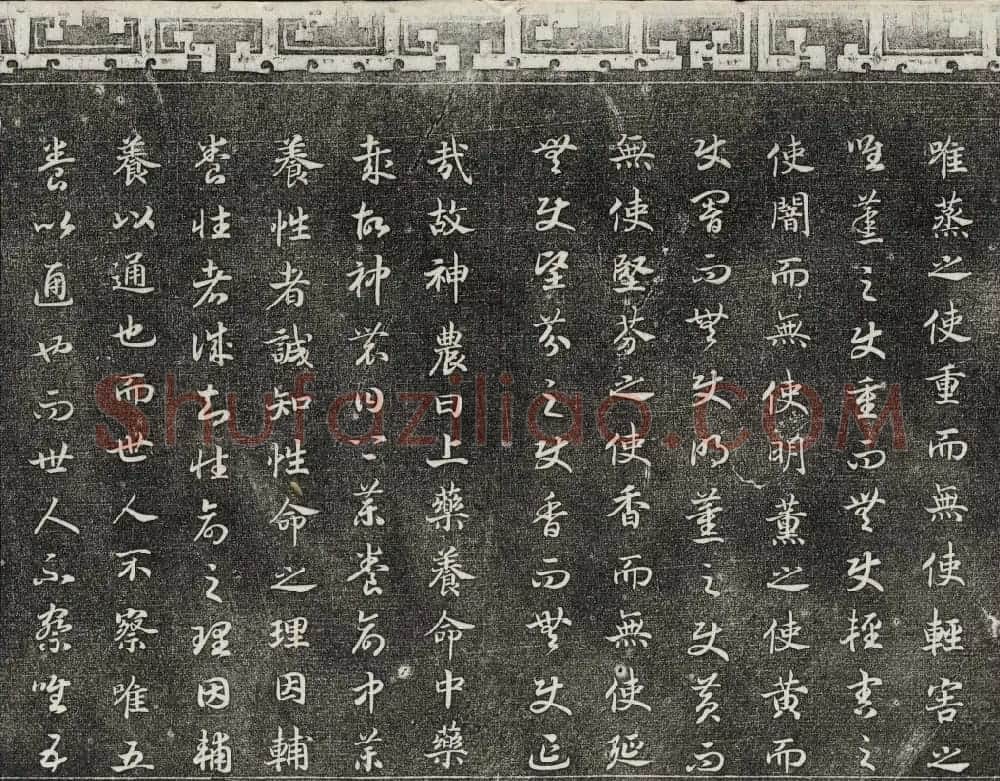 唯蒸之使重而無使輕害之
唯蒸之使重而無使輕害之
使闇而無使明薰之使黄而
使闇而無使明薰之使黄而
無使堅芬之使香而無使延
無使堅芬之使香而無使延
哉故神農曰上藥養命中藥
哉故神農曰上藥養命中藥
養性者誠知性命之理因輔
養性者誠知性命之理因輔
養以通也而世人不察唯五
養以通也而世人不察唯五
Shufaziliao.com